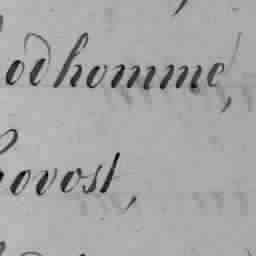 odhomme,
ovost,